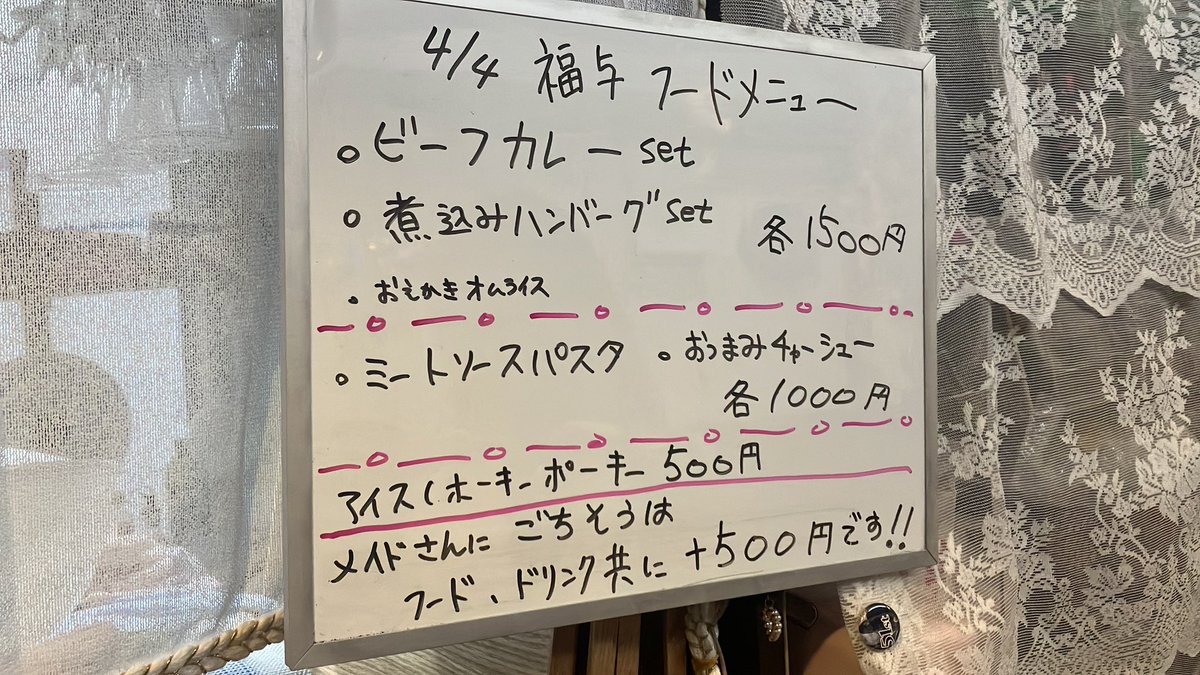 4/4 福与 フードメニュー
○ビーフカレーset
○煮込みハンバーグset
各1500円
○おえかきオムライス
○ミートソースパスタ ○おつまみチャーシュー
各1000円
アイス(ホーキーポーキー 500円
メイドさんに ごちそうは
フード、ドリンク共に +500円です!!
51st